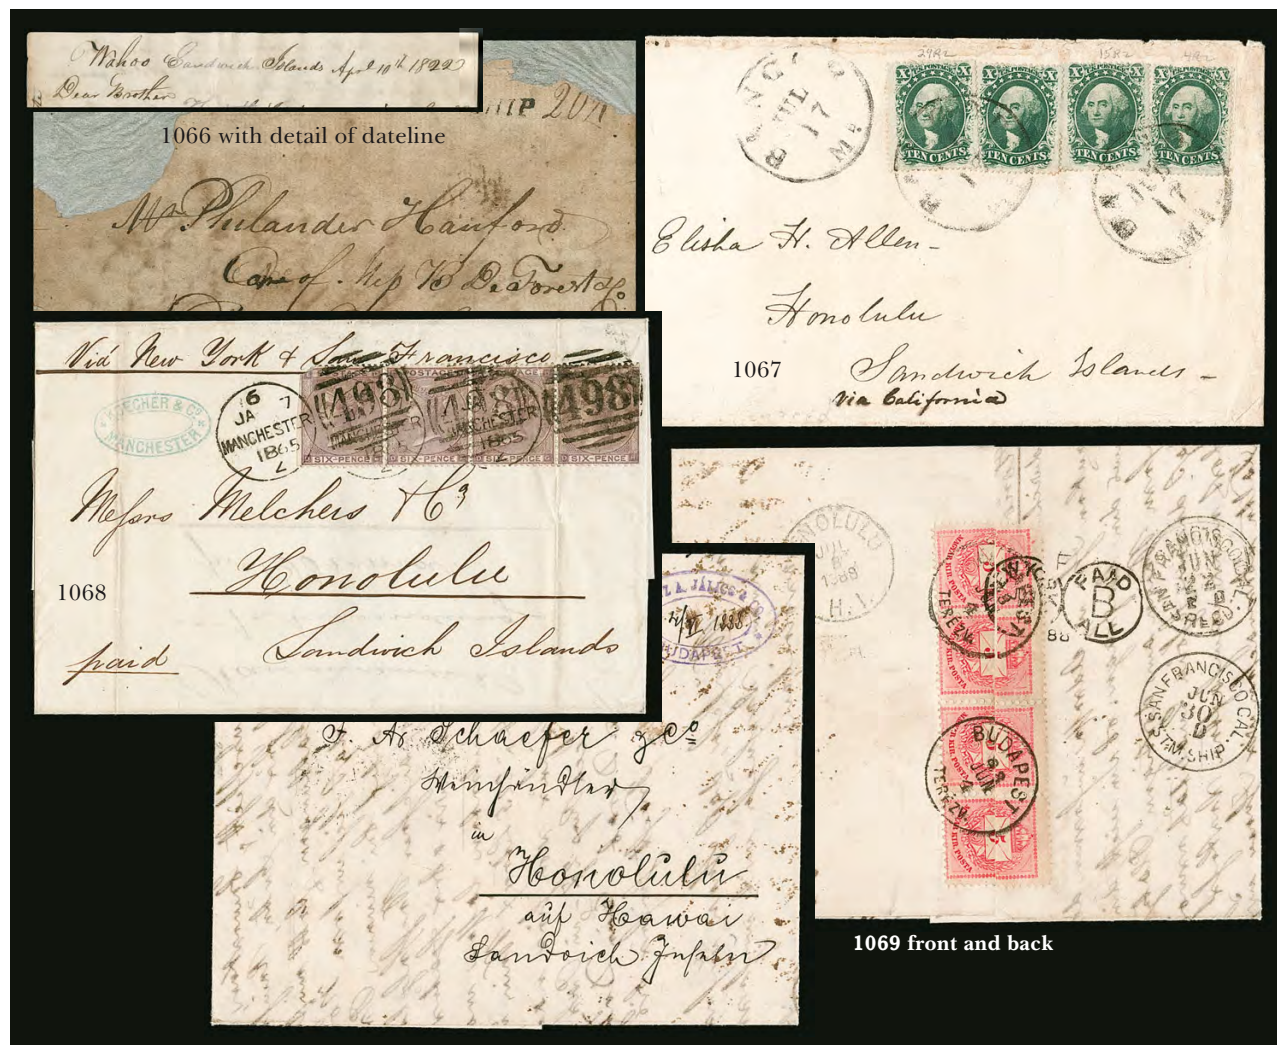 Wahoo Sandwich Islands Apl 10th 1822
Dear Brother
SHIP
1066 with detail of dateline
Mr Philander Hanford
Care of
De Forest & Co
29R2 15R2 4R2
BANGOR
JUL
17
Me
TEN CENTS TEN CENTS TEN CENTS TEN CENTS
Elisha H. Allen -
Honolulu
1067
Sandwich Islands -
Via California
Via New York & San Francisco
MANCHESTER
6
JA 7
MANCHESTER
1865
498 498 498
SIX-PENCE SIX-PENCE SIX-PENCE SIX-PENCE
Messrs Melchers & Co
Honolulu
1068
Sandwich Islands
paid
A. JÁLICS & Co
1888
BUDAPEST
F. A. Schaefer & Co
Weinhändler
in
Honolulu
auf Hawai
Sandwich Inseln
HONOLULU
JUL
8
1888
H.I.
PAID
B
ALL
88
SAN FRANCISCO, CAL.
JUN
REC'D
SAN FRANCISCO, CAL.
JUN
30
D
STMSHIP
MAGYAR KIR. POSTA
BUDAPEST
88
JUN
4
TERÉZV.
1069 front and back